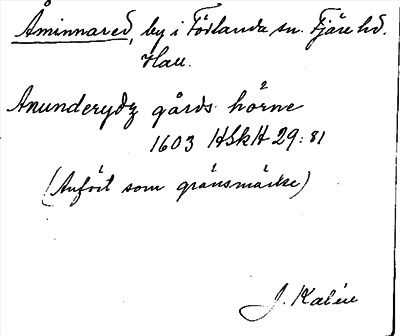 Åminnared, by i Förlanda sn. Fjäre hd.
Hall.
Anunderydz gårds hörne
1603 HSkH 29:81
(Anfört som gränsmärke)
J. Kalén